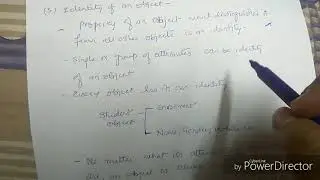 (3) Identity of an object -
- Property of an object which distinguishes it
from all other objects is an identity.
- Single or group of attributes can be identity
of an object
- Every object has its own identity
Student enrolment
object
Name,
- No matter what its
an object is
Made with
PowerDirector